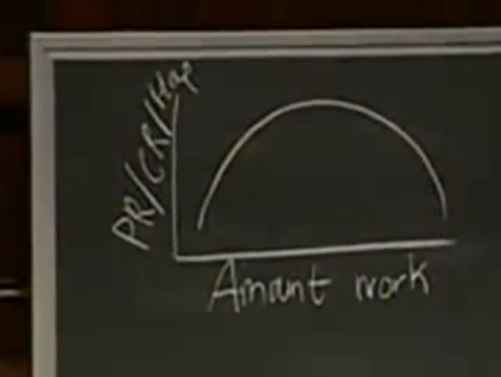 PR/CR/Hap
Amant work